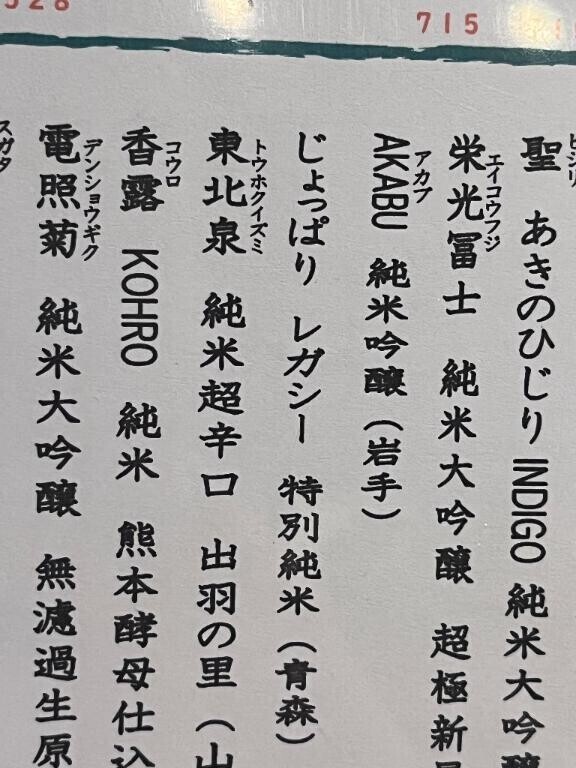 715
聖 あきのひじり INDIGO 純米大吟醸
ヒジリ
栄光冨士 純米大吟醸 超極新
エイコウフジ
AKABU 純米吟醸(岩手)
アカブ
じょっぱり レガシー 特別純米(青森)
東北泉 純米超辛口 出羽の里(山
トウホクイズミ
香露 KOHRO 純米 熊本酵母仕込
コウロ
電照菊 純米大吟醸 無濾過生原
デンショウギク
スガタ